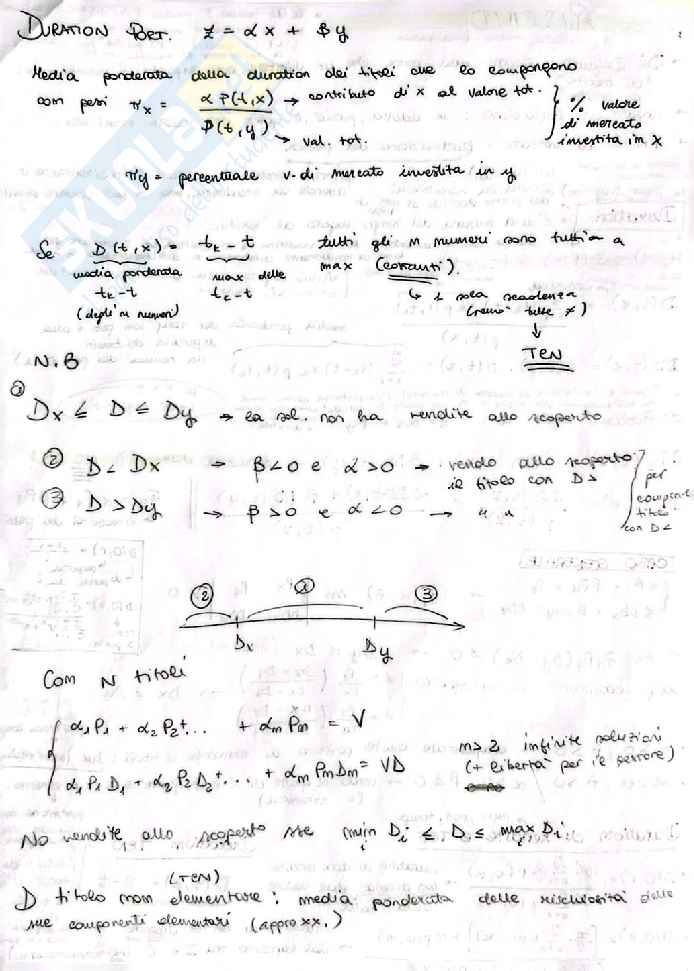 DURATION PORT. z = αx + βy
Media ponderata della duration dei titoli che lo compongono
con pesi πx = α P(t,x) / P(t,y) → contributo di x al valore tot. → val. tot. } % valore di mercato investita in x
πy = percentuale v. di mercato investita in y
Se D(t,x) = tk - t tutti gli m numeri sono tutti = a
media ponderata max delle max (costanti).
tk - t tk - t ↳ 1 sola scadenza
(degli m numeri) (sono tutte ≠)
↓
TCN
N.B
① Dx ≤ D ≤ Dy → la sol. non ha vendite allo scoperto
② D < Dx → β<0 e α>0 → vendo allo scoperto
il titolo con D>
③ D > Dy → β>0 e α<0 → " "
} per comprare titolo con D<
② ① ③
Dx Dy
Con N titoli
α1P1 + α2P2 + ... + αmPm = V
α1P1D1 + α2P2D2 + ... + αmPmDm = VD
m>2 infinite soluzioni
(+ libertà per il gestore)
No vendite allo scoperto sse min i Di ≤ D ≤ max i Di
(TCN)
D titolo non elementare: media ponderata delle rischiosità delle
sue componenti elementari (approxx.)
SKUOLA